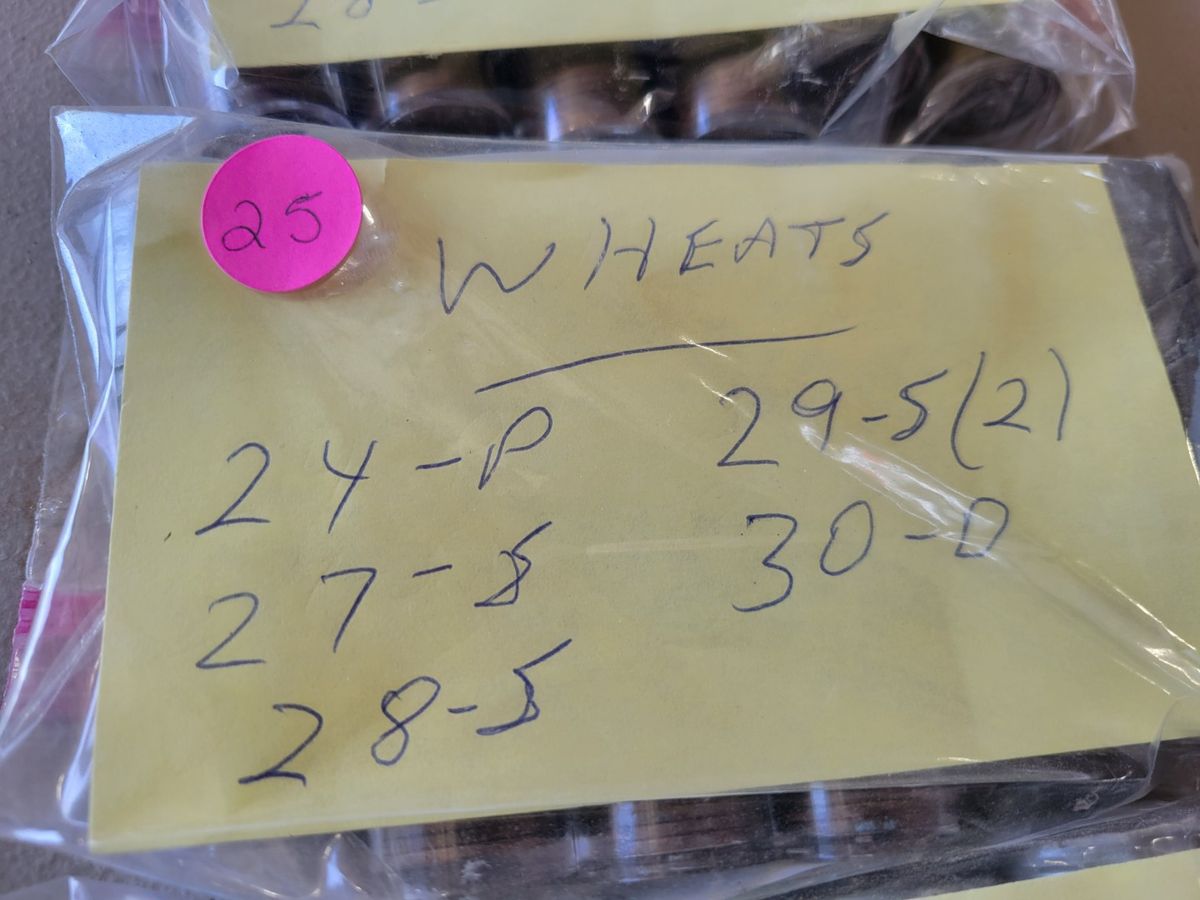 25
WHEATS
24-P
27-S
28-S
29-S(2)
30-D